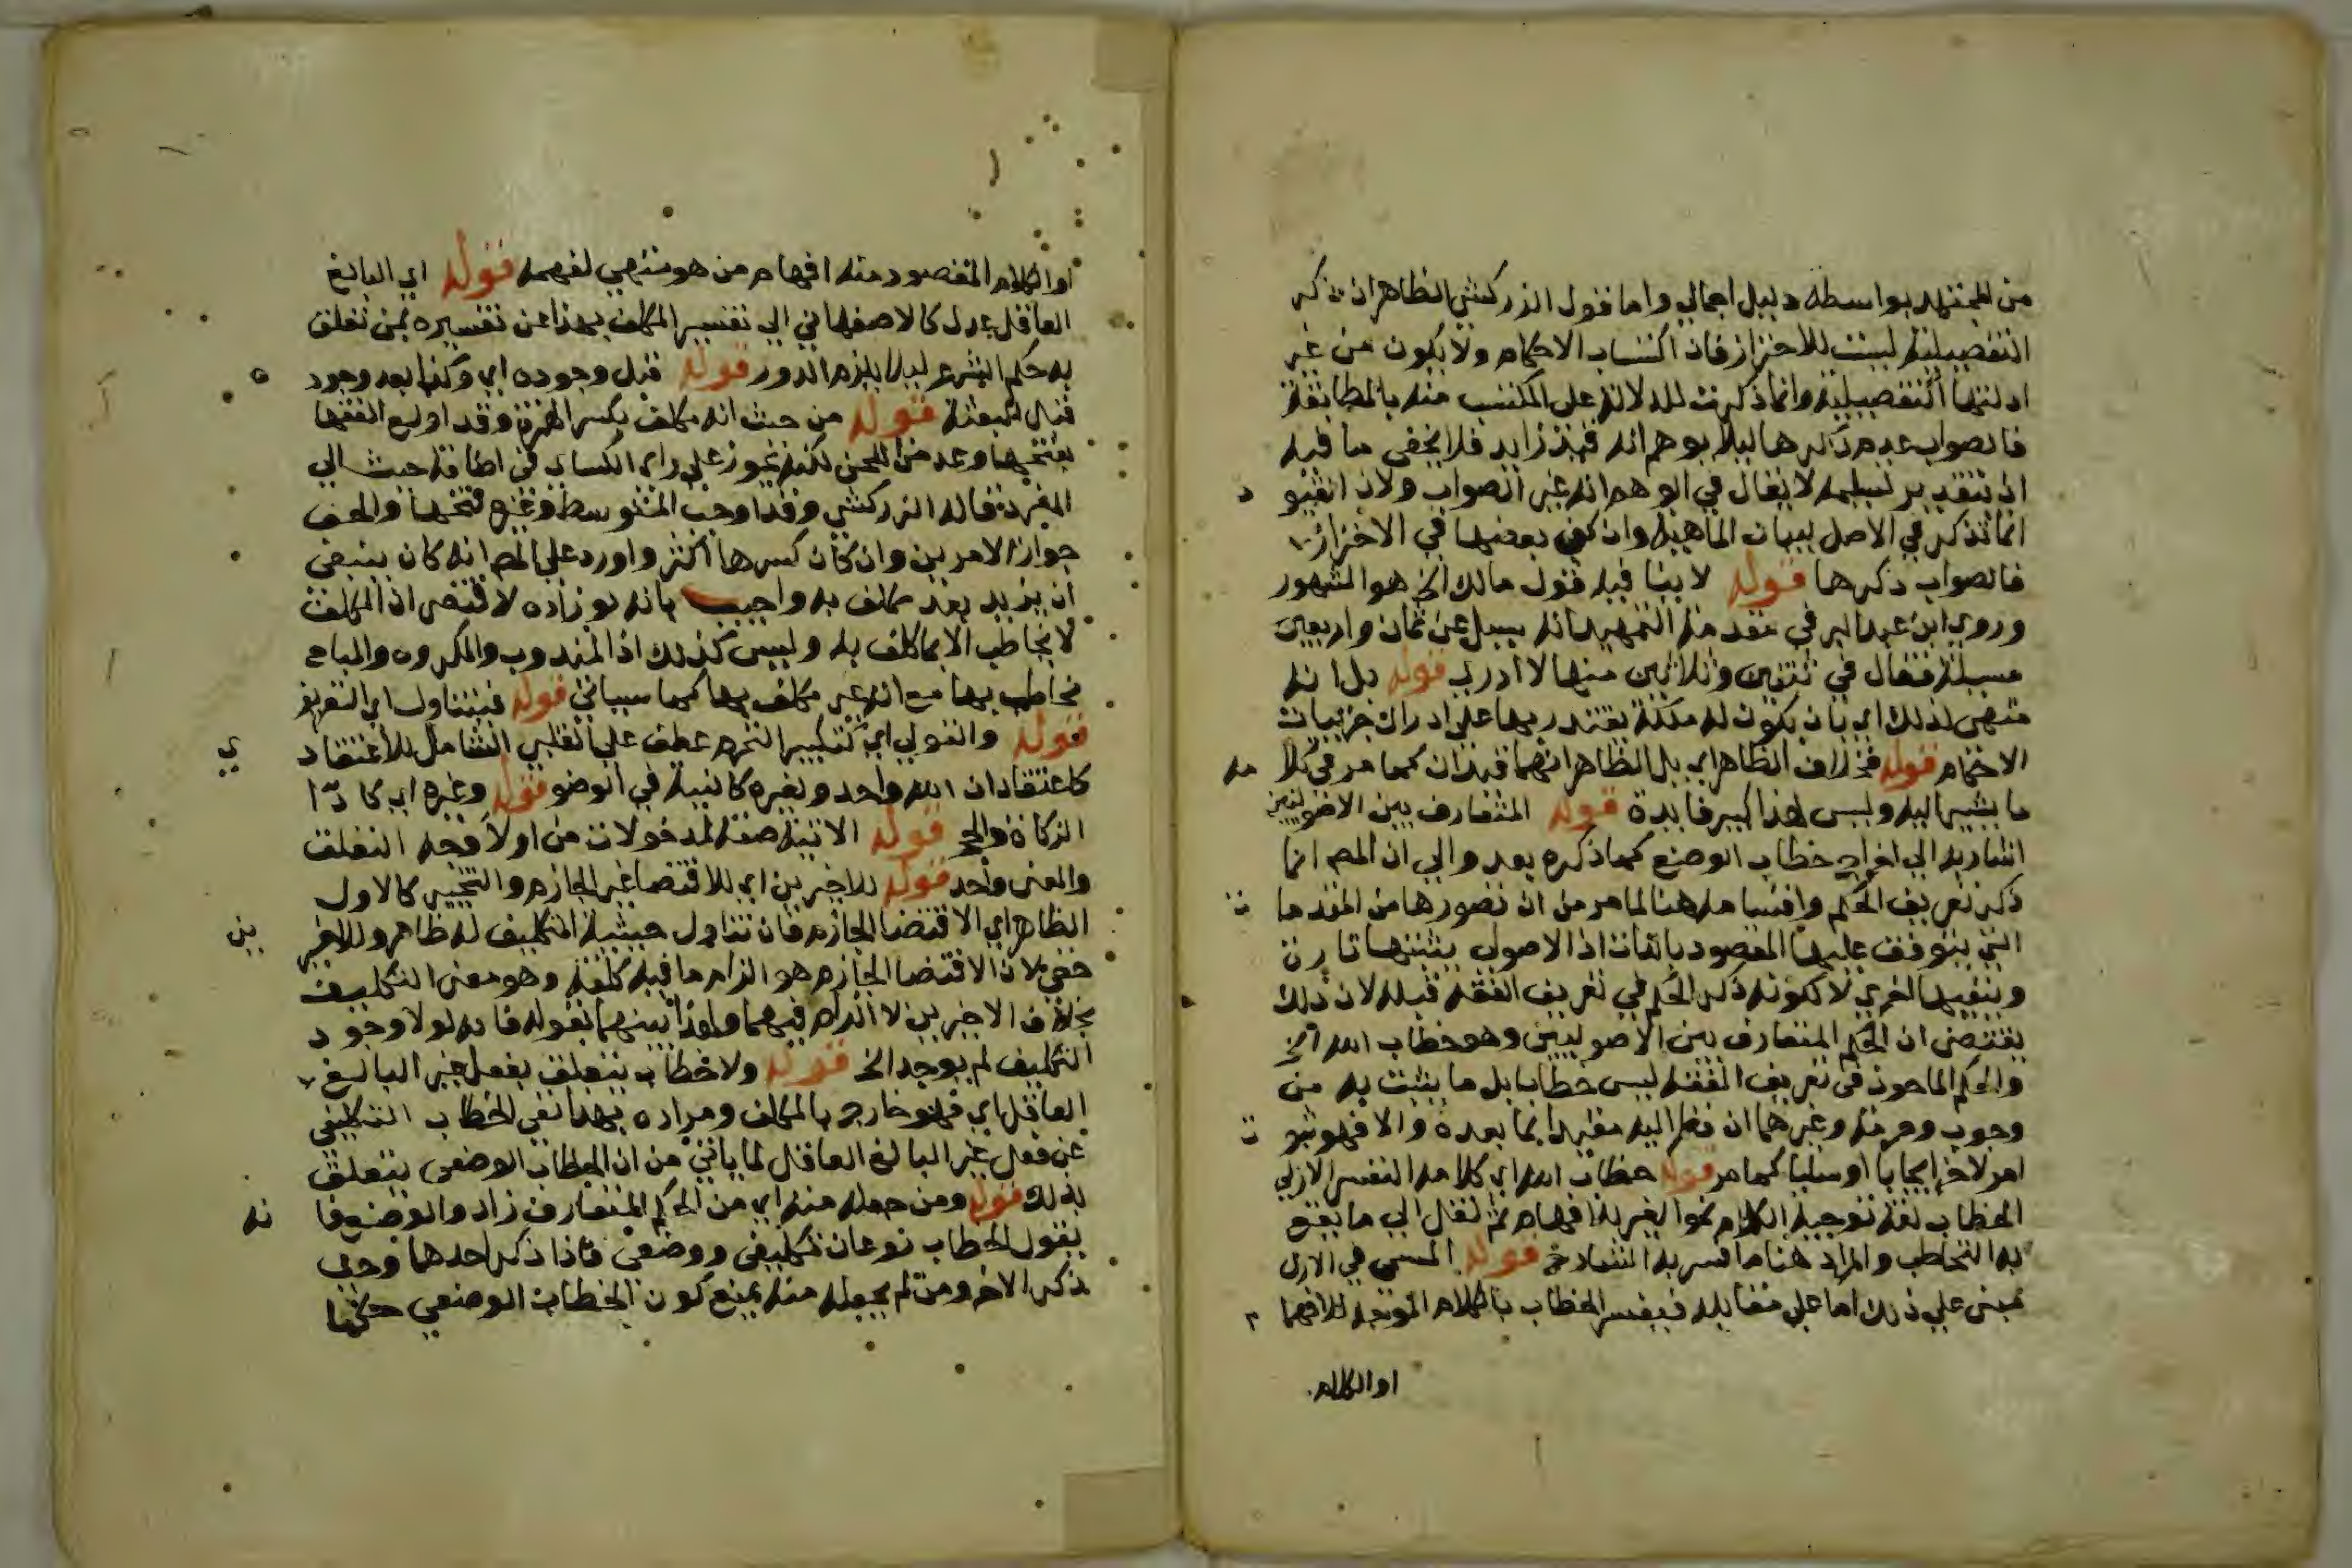 من المجتهد بواسطة دليل اجمالي واما قول الزركشي الظاهر ان ذكر
التفصيلية ليست للاحتراز فان اكتساب الاحكام ولا يكون من غير
ادلتها التفصيلية وانما ذكرت للدلالة على المكتسب منه بالمطابقة
فالصواب عدم ذكرها ليلا يوهم انه قيد زايد فلا يخفى ما فيه
اذ بتقدير تسليمه لا يقال في الوهم انه غير الصواب ولان القيو د
انما تذكر في الاصل لبيان الماهية وان كفى بعضها في الاحتراز
فالصواب ذكرها قوله لا ينافيه قول مالك الخ هو المشهور
وروي ابن عبد البر في مقدمة التمهيد انه سيل عن ثمان واربعين
مسيلة فقال في ثنتين وثلاثين منها لا ادري قوله بل انه
متهيى لذلك اي بان يكون له ملكة يقتدر بها على ادراك جزييات
الاحكام قوله فخلاف الظاهر اي بل الظاهر انهما قيدان كما مر في كلا مه
ما يشير اليه وليس لهذا كبير فايدة قوله المتعارف بين الاصوليين
اشار به الى اخراج خطاب الوضع كما ذكره بعد والي ان المص انما
ذكر تعريف الحكم واقسامه هنا لما مر من ان تصورها من المقدما ت
التي يتوقف عليها المقصود بالذات اذ الاصولي يثبتها تارة
وينفيها اخري لا لكونه ذكر الحكم في تعريف الفقه قبله لان ذلك
يقتضي ان الحكم المتعارف بين الاصوليين وهو خطاب الله الخ
والحكم الماخوذ في تعريف الفقه ليس خطابا بل ما يثبت به من
وجوب وحرمة وغيرهما ان نظر اليه مقيدا بما بعده والا فهو ثبو ت
امر لاخر ايجابا او سلبا كما مر قوله خطاب الله اي كلامه النفسي الازلي
الخطاب لغة توجيه الكلام نحو الغير للافهام ثم نقل الي ما يقع
به التخاطب والمراد هنا ما فسر به الشارح قوله المسمى في الازل
مبنى على ذلك اما على مقابله فيفسر الخطاب بالكلام الموجه للافها م
او الكلام
او الكلام المقصود منه افهام من هو متهيي لفهمه قوله اي البالغ
العاقل عدل كالاصفهاني الي تفسير المكلف بهذا عن تفسيره بمن تعلق
به حكم الشرع ليلا يلزم الدور قوله قبل وجوده اي وكذا بعد وجود ه
قبل البعثة قوله من حيث انه مكلف بكسر الهمزة وقد اولع الفقها
بفتحها وعد من اللحن لكنه يجوز على راي الكساي في اضافة حيث الي
المفرد قاله الزركشي وقد اوجب المتوسط وغيره فتحها والحق
جواز الامرين وان كان كسرها اكثر واورد على المص انه كان ينبغي
ان يزيد بعد مكلف به واجيب بانه لو زاده لاقتضى ان المكلف
لا يخاطب الا بما كلف به وليس كذلك اذ المندوب والمكروه والمباح
مخاطب بها مع انه غير مكلف بها كما سياتي قوله فيتناول اي التعريف
قوله والقولي اي كتكبير التحرم عطف على القلبي الشامل للاعتقاد ي
كاعتقاد ان الله واحد ولغيره كالنية في الوضو قوله وغيره اي كادا
الزكاة والحج قوله الاتية صفة لمدخولات من اولا وجه التعلق
والمعنى واحد قوله للاخيرين اي للاقتضا غير الجازم والتخيير كالاول
الظاهر اي الاقتضا الجازم فان تناول حيثية التكليف له ظاهر وللاخير ين
خفي لان الاقتضا الجازم هو الزام ما فيه كلفة وهو معنى التكليف
بخلاف الاخيرين لا الزام فيهما ولهذا بينهما بقوله فانه لولا وجود
التكليف لم يوجد الخ قوله ولا خطاب يتعلق بفعل غير البالغ
العاقل اي فهو خارج بالمكلف ومراده بهذا نفي الخطاب التكليفي
عن فعل غير البالغ العاقل لما ياتي من ان الخطاب الوضعي يتعلق
بذلك قوله ومن جعله منه اي من الحكم المتعارف زاد والوضع فا نه
يقول الخطاب نوعان تكليفي ووضعي فاذا ذكر احدهما وجب
ذكر الاخر ومن لم يجعله منه يمنع كون الخطاب الوضعي حكما